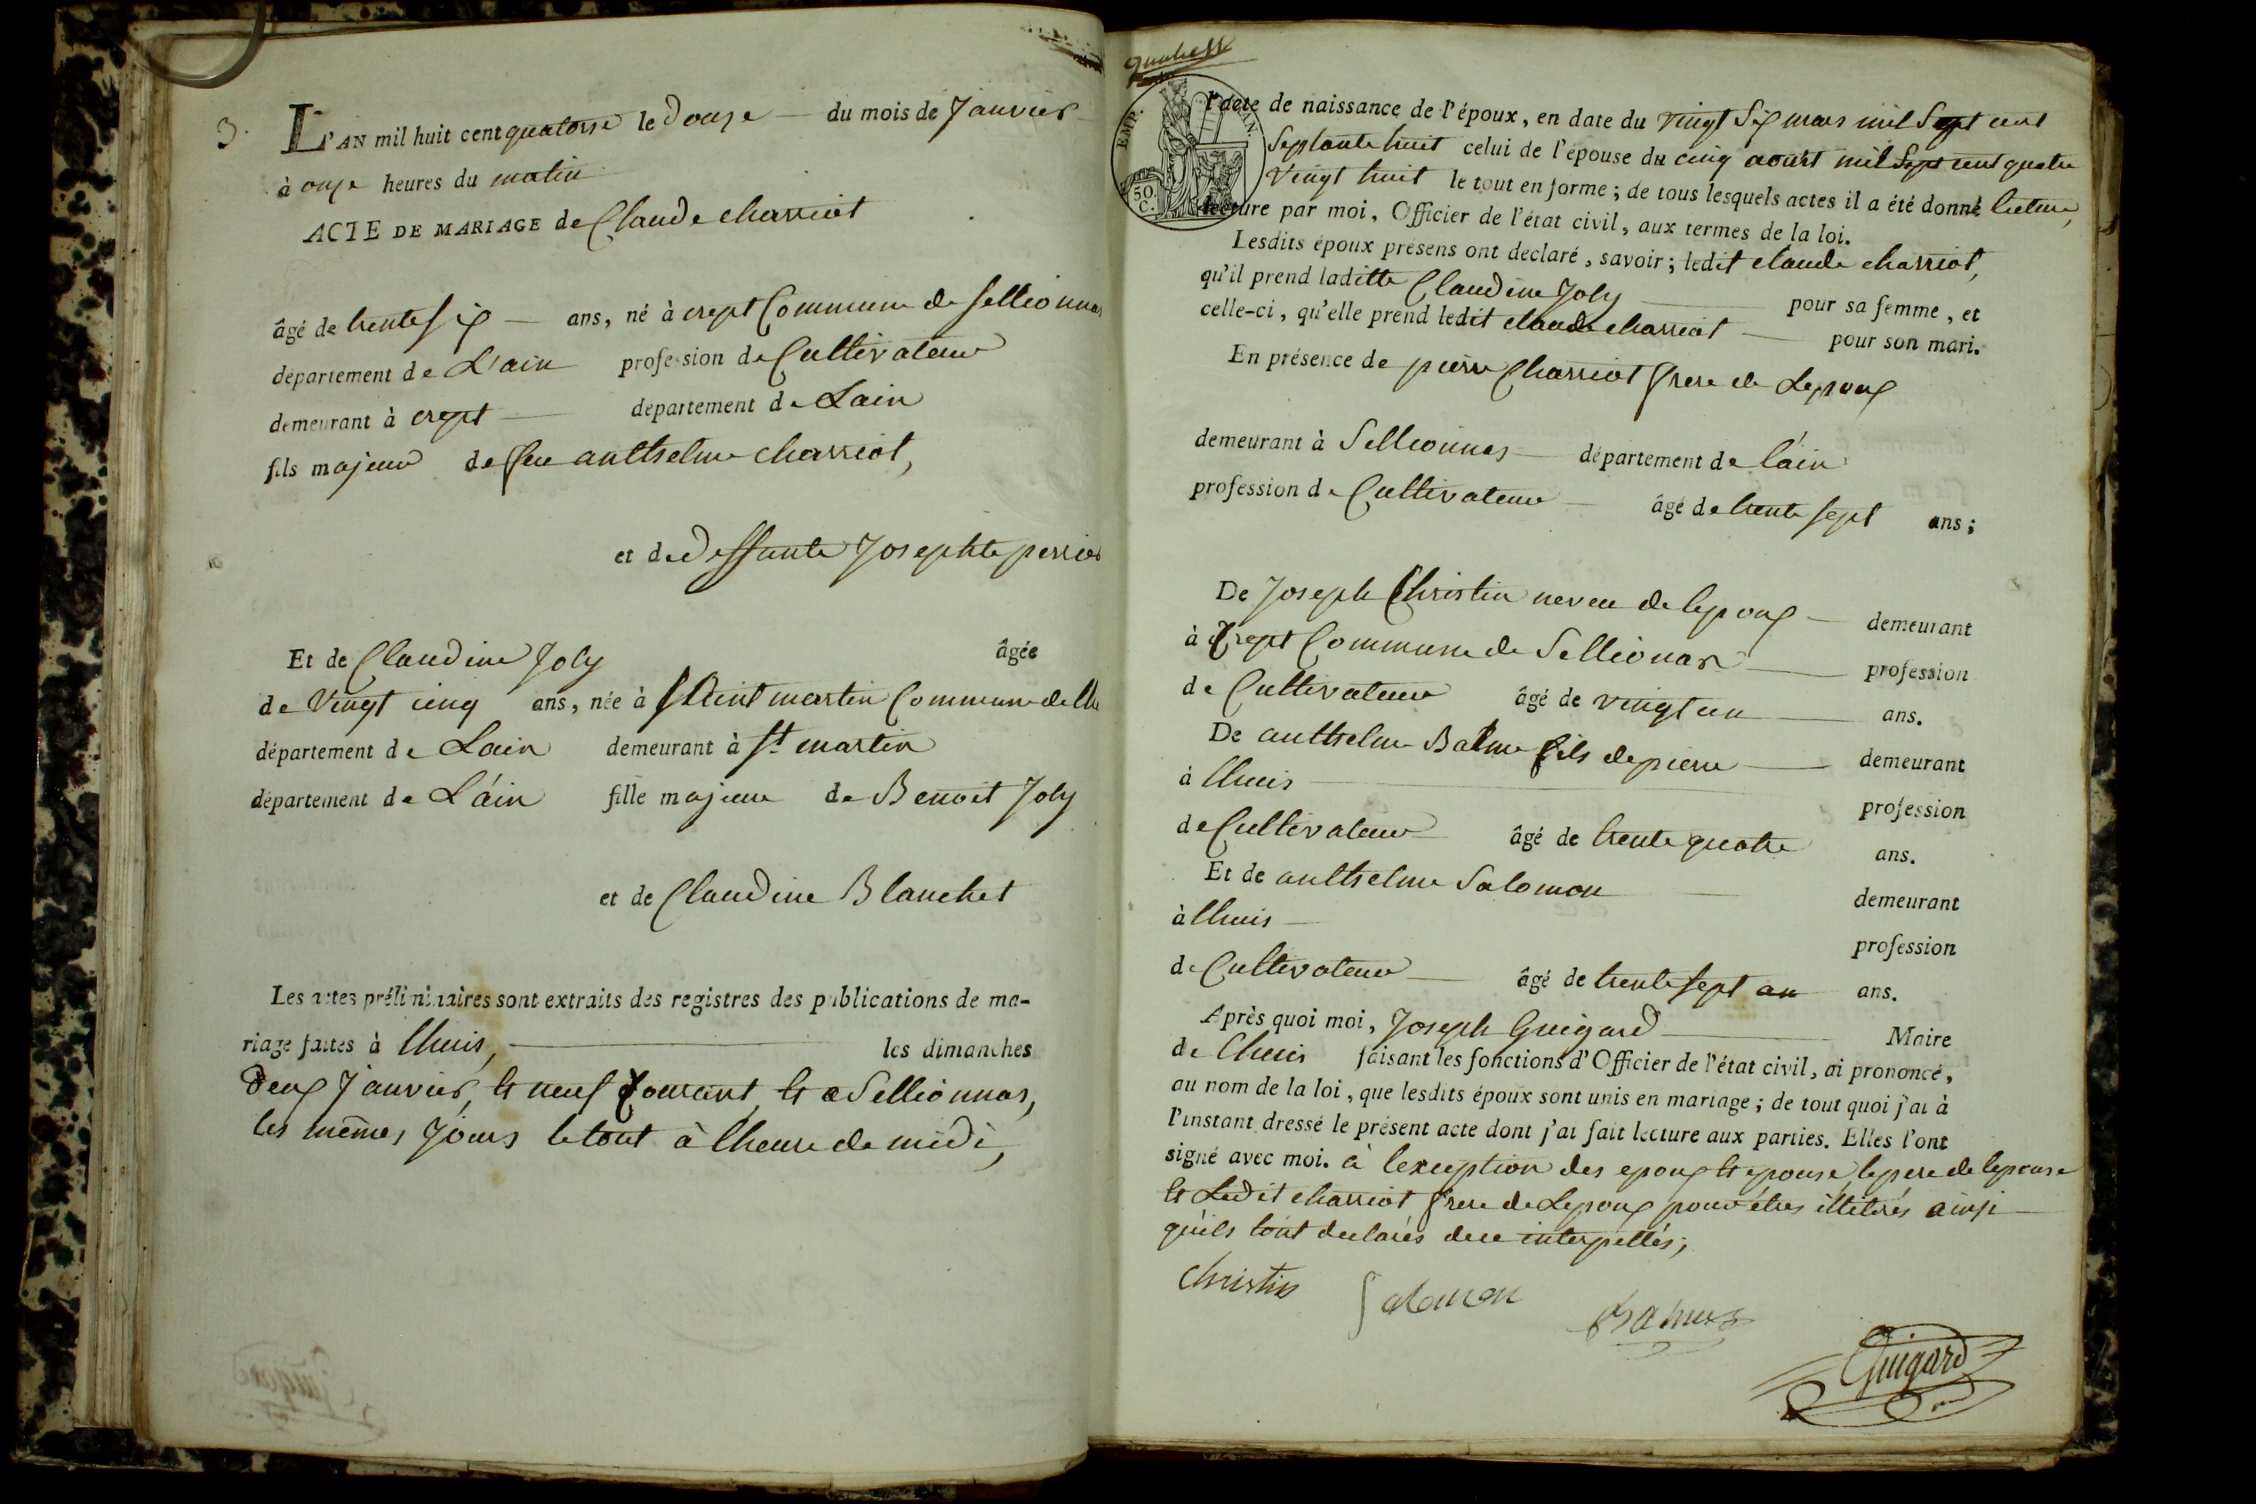 3.
L'AN mil huit cent quatorse le douze du mois de Janvier
à onze heures du matin
ACTE DE MARIAGE de Claude charriot
âgé de trente six ans, né à crept Commune de sellionnas
département de L'ain profession de Cultivateur
demeurant à crept département de Lain
fils majeur de feu anthelme charriot,
et de deffunte Josephte perrier
Et de Claudine Joly âgée
de Vingt cinq ans, née à saint martin Commune de
département de Lain demeurant à st martin
département de L'áin fille majeure de Benoit Joly
et de Claudine Blanchet
Les actes préliminaires sont extraits des registres des publications de ma-
riage faites à lhuis, les dimanches
deux Janvier, et neuf Courant, et a Sellionnas,
les mêmes Jours le tout à lheure de midi,
EMP. 50. C.
l'acte de naissance de l'époux, en date du vingt Six mars mil Sept cent
Septante huit celui de l'épouse du cinq aoust mil Sept cent quatre
Vingt huit le tout en forme ; de tous lesquels actes il a été donné lecture,
lecture par moi, Officier de l'état civil, aux termes de la loi.
Lesdits époux présens ont declaré, savoir ; ledit claude charriot,
qu'il prend laditte Claudine Joly pour sa femme, et
celle-ci, qu'elle prend ledit claude charriot pour son mari.
En présence de pierre Charriot frere de Lepoux
demeurant à Sellionnas département de láin
profession de Cultivateur âgé de trente sept ans ;
De Joseph Christin neveu de lepoux demeurant
à Crept Commune de Sellionas profession
de Cultivateur âgé de vingt un ans.
De anthelme Balme fils de pierre demeurant
à lhuis profession
de Cultivateur âgé de trente quatre ans.
Et de anthelme Salomon demeurant
à lhuis profession
de Cultivateur âgé de trente sept an ans.
Après quoi moi, Joseph Guigard Maire
de lhuis faisant les fonctions d'Officier de l'état civil, ai prononcé,
au nom de la loi, que lesdits époux sont unis en mariage ; de tout quoi j'ai à
l'instant dressé le présent acte dont j'ai fait lecture aux parties. Elles l'ont
signé avec moi. à lexception des epoux et epouse, le pere de lepouse
et Ledit charriot frere de Lepoux pour étres illitérés ainsi
qu'ils lont declarés de ce interpellés ;
christin Salomon Balme
Guigard